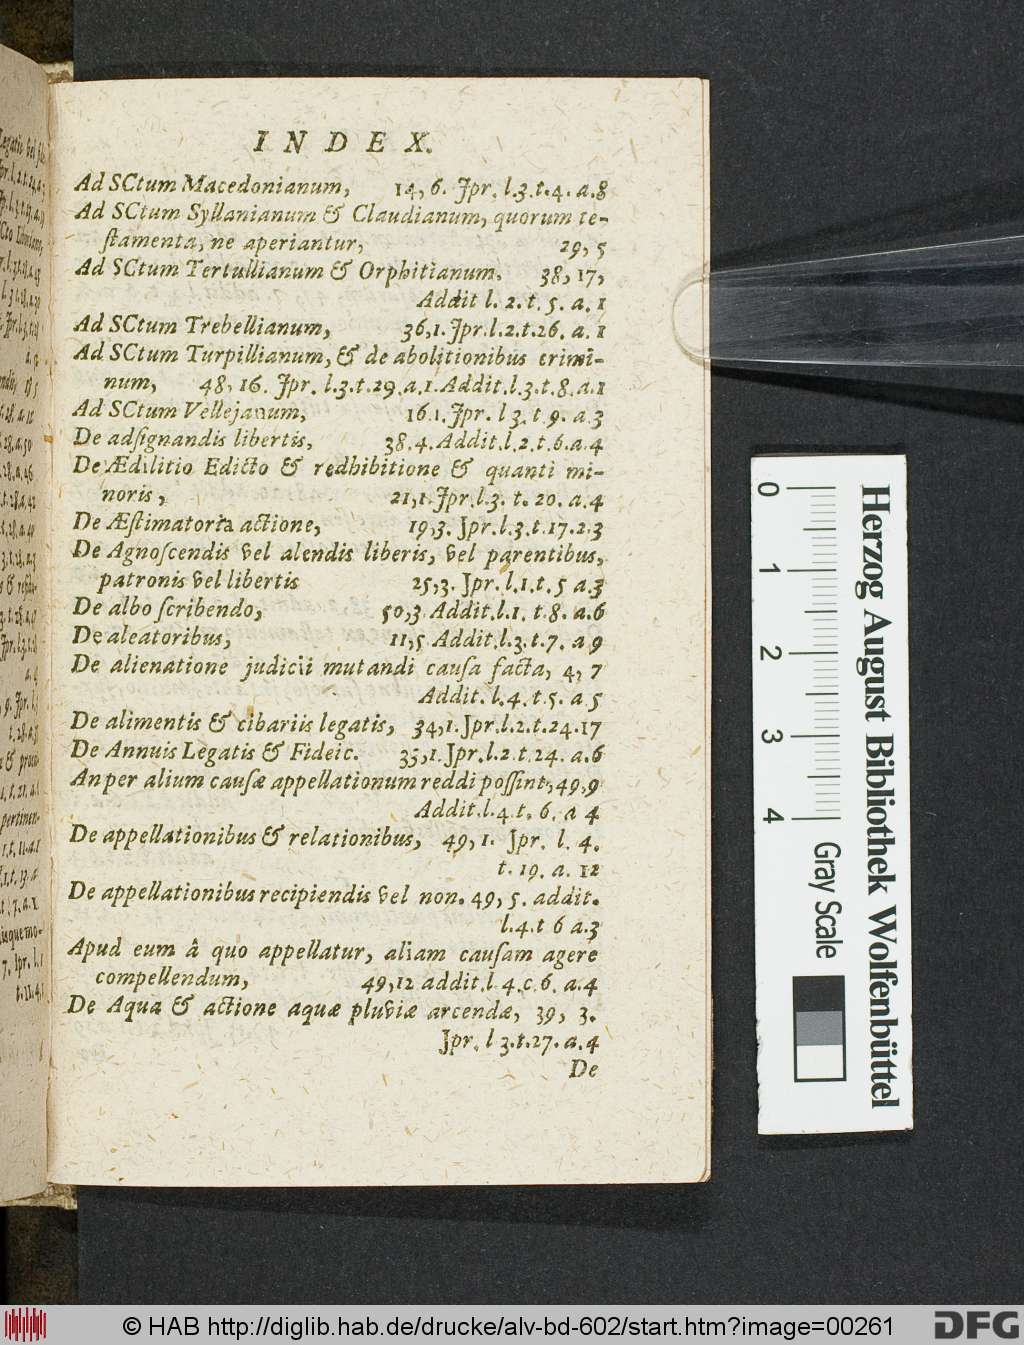 INDEX.
Ad SCtum Macedonianum, 14, 6. Jpr. l.3.t.4. a.8
Ad SCtum Syllanianum & Claudianum, quorum te-
ſtamenta, ne aperiantur, 29, 5
Ad SCtum Tertullianum & Orphitianum. 38, 17,
Addit l. 2. t. 5. a. 1
Ad SCtum Trebellianum, 36,1. Jpr.l.2.t.26. a. 1
Ad SCtum Turpillianum, & de abolitionibus crimi-
num, 48, 16. Jpr. l.3.t.29.a.1.Addit.l.3.t.8.a.1
Ad SCtum Vellejanum, 16.1. Jpr. l 3. t 9. a.3
De adſignandis libertis, 38.4. Addit.l.2.t.6.a.4
De Ædilitio Edicto & redhibitione & quanti mi-
noris, 21,1. Jpr.l.3. t. 20. a.4
De Æſtimatoria actione, 19,3. Jpr.l.3.t.17.2.3
De Agnoſcendis vel alendis liberis, vel parentibus,
patronis vel libertis 25,3. Jpr. l.1.t. 5 a.3
De albo ſcribendo, 50,3 Addit.l.1. t.8. a.6
De aleatoribus, 11,5 Addit.l.3.t.7. a 9
De alienatione judicii mutandi cauſa facta, 4, 7
Addit. l.4.t.5. a.5
De alimentis & cibariis legatis, 34,1.Jpr.l.2.t.24.17
De Annuis Legatis & Fideic. 33,1.Jpr.l.2.t.24. a.6
An per alium cauſæ appellationum reddi poſſint, 49,9
Addit.l.4.t. 6. a 4
De appellationibus & relationibus, 49, 1. Jpr. l. 4.
t. 19. a. 12
De appellationibus recipiendis vel non. 49, 5. addit.
l.4.t 6 a.3
Apud eum â quo appellatur, aliam cauſam agere
compellendum, 49,12 addit.l 4.c.6. a.4
De Aqua & actione aquæ pluviæ arcendæ, 39, 3.
Jpr. l 3.t.27. a.4
De
0 1 2 3 4
Gray Scale
Herzog August Bibliothek Wolfenbüttel
© HAB http://diglib.hab.de/drucke/alv-bd-602/start.htm?image=00261
DFG